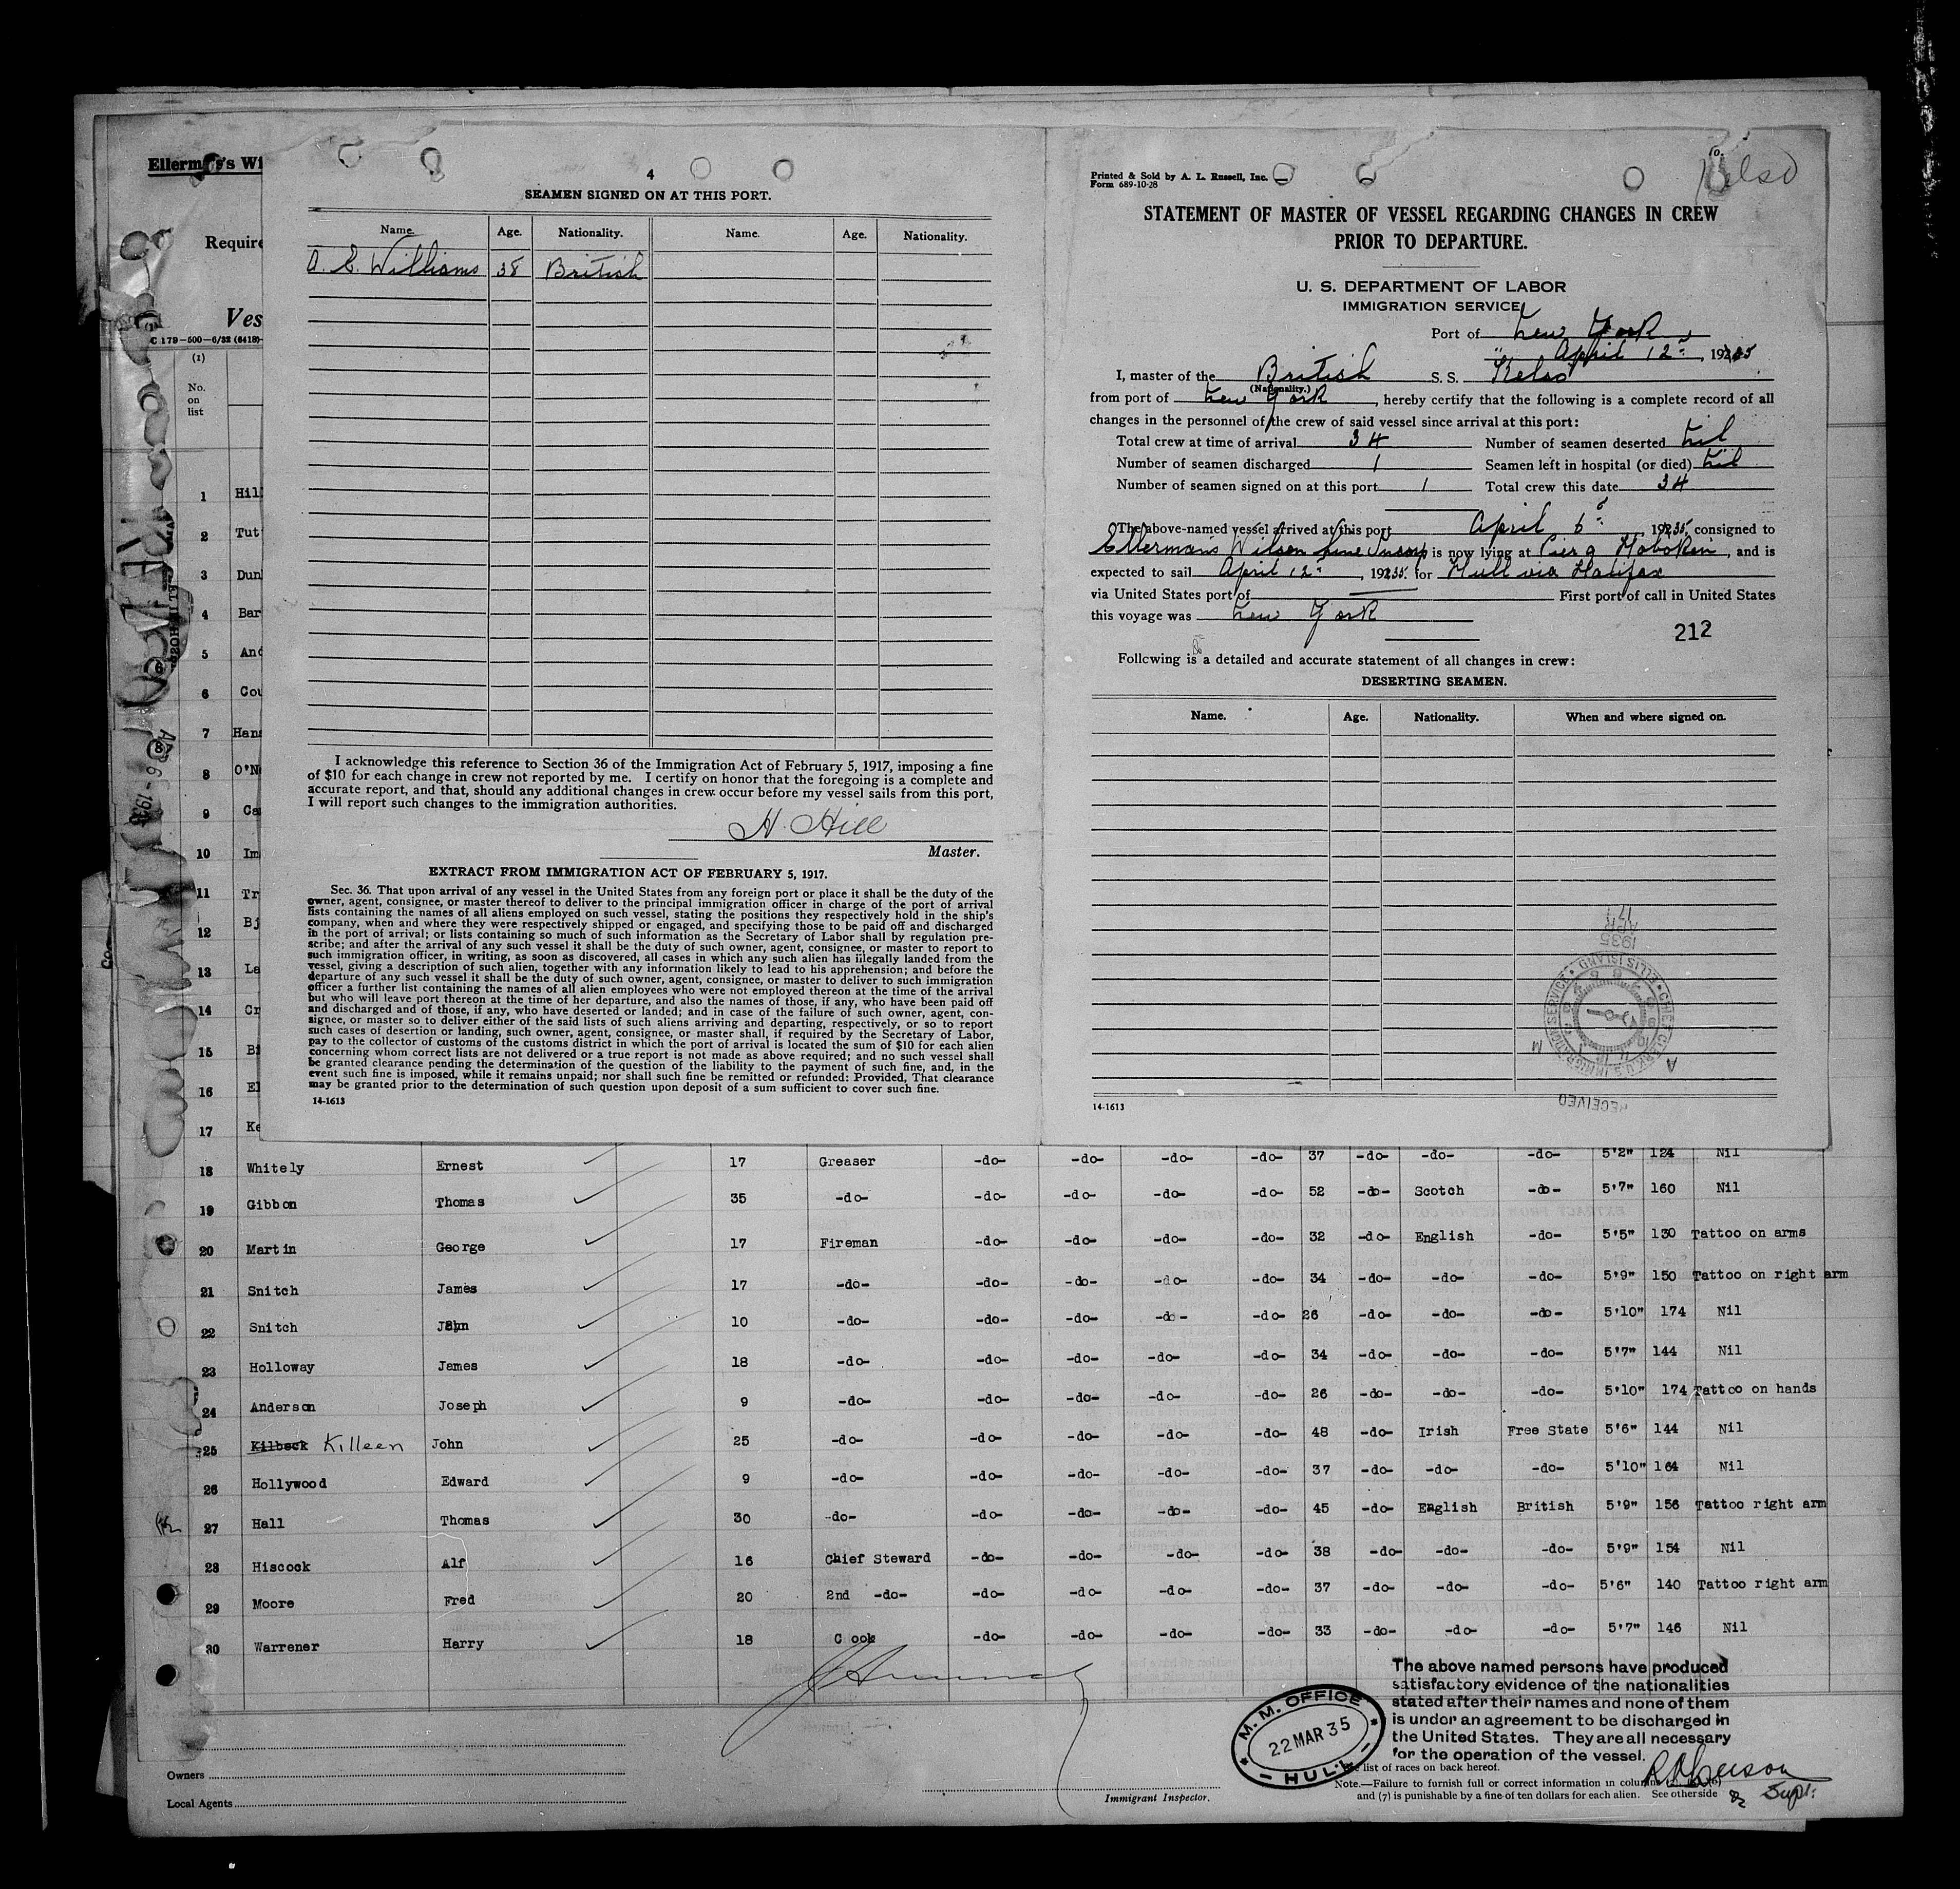 Ellerman's Wi
Require
Ves
C 179-500-6/32 (6418)-
(1)
No.
on
list
1 Hil
2 Tut
3 Dun
4 Bar
5 And
6 Cou
7 Hans
8 O'N
9 Ca
10 Im
11 Tr
12 Bj
13 La
14 Cr
15 Bi
16 El
17 Ke
4
SEAMEN SIGNED ON AT THIS PORT.
Name. Age. Nationality. Name. Age. Nationality.
A. E. Williams 38 British
I acknowledge this reference to Section 36 of the Immigration Act of February 5, 1917, imposing a fine
of $10 for each change in crew not reported by me. I certify on honor that the foregoing is a complete and
accurate report, and that, should any additional changes in crew occur before my vessel sails from this port,
I will report such changes to the immigration authorities.
H. Hill
Master.
EXTRACT FROM IMMIGRATION ACT OF FEBRUARY 5, 1917.
Sec. 36. That upon arrival of any vessel in the United States from any foreign port or place it shall be the duty of the
owner, agent, consignee, or master thereof to deliver to the principal immigration officer in charge of the port of arrival
lists containing the names of all aliens employed on such vessel, stating the positions they respectively hold in the ship's
company, when and where they were respectively shipped or engaged, and specifying those to be paid off and discharged
in the port of arrival; or lists containing so much of such information as the Secretary of Labor shall by regulation pre-
scribe; and after the arrival of any such vessel it shall be the duty of such owner, agent, consignee, or master to report to
such immigration officer, in writing, as soon as discovered, all cases in which any such alien has illegally landed from the
vessel, giving a description of such alien, together with any information likely to lead to his apprehension; and before the
departure of any such vessel it shall be the duty of such owner, agent, consignee, or master to deliver to such immigration
officer a further list containing the names of all alien employees who were not employed thereon at the time of the arrival
but who will leave port thereon at the time of her departure, and also the names of those, if any, who have been paid off
and discharged and of those, if any, who have deserted or landed; and in case of the failure of such owner, agent, con-
signee, or master so to deliver either of the said lists of such aliens arriving and departing, respectively, or so to report
such cases of desertion or landing, such owner, agent, consignee, or master shall, if required by the Secretary of Labor,
pay to the collector of customs of the customs district in which the port of arrival is located the sum of $10 for each alien
concerning whom correct lists are not delivered or a true report is not made as above required; and no such vessel shall
be granted clearance pending the determination of the question of the liability to the payment of such fine, and, in the
event such fine is imposed, while it remains unpaid; nor shall such fine be remitted or refunded: Provided, That clearance
may be granted prior to the determination of such question upon deposit of a sum sufficient to cover such fine.
14-1613
Printed & Sold by A. L. Russell, Inc.
Form 689-10-28
Kelso
STATEMENT OF MASTER OF VESSEL REGARDING CHANGES IN CREW
PRIOR TO DEPARTURE.
U. S. DEPARTMENT OF LABOR
IMMIGRATION SERVICE
Port of New York
April 12, 1935
I, master of the British S. S. Kelso
(Nationality.)
from port of New York, hereby certify that the following is a complete record of all
changes in the personnel of the crew of said vessel since arrival at this port:
Total crew at time of arrival 34 Number of seamen deserted Nil
Number of seamen discharged 1 Seamen left in hospital (or died) Nil
Number of seamen signed on at this port 1 Total crew this date 34
The above-named vessel arrived at this port April 6, 1935, consigned to
Ellerman's Wilson Line Incorp is now lying at Pier 9 Hoboken, and is
expected to sail April 12, 1935. for Hull via Halifax
via United States port of First port of call in United States
this voyage was New York
212
Following is a detailed and accurate statement of all changes in crew:
DESERTING SEAMEN.
Name. Age. Nationality. When and where signed on.
1935 APR 17
CHIEF CLERK U.S. IMMIGRATION SERVICE ELLIS ISLAND
A M
RECEIVED
14-1613
18 Whitely Ernest 17 Greaser -do- -do- -do- -do- 37 -do- -do- -do- 5'2" 124 Nil
19 Gibbon Thomas 35 -do- -do- -do- -do- -do- 52 -do- Scotch -do- 5'7" 160 Nil
20 Martin George 17 Fireman -do- -do- -do- -do- 32 -do- English -do- 5'5" 130 Tattoo on arms
21 Snitch James 17 -do- -do- -do- -do- -do- 34 -do- -do- -do- 5'9" 150 Tattoo on right arm
22 Snitch John 10 -do- -do- -do- -do- -do- 26 -do- -do- -do- 5'10" 174 Nil
23 Holloway James 18 -do- -do- -do- -do- -do- 34 -do- -do- -do- 5'7" 144 Nil
24 Anderson Joseph 9 -do- -do- -do- -do- -do- 26 -do- -do- -do- 5'10" 174 Tattoo on hands
25 Kilbeck Killeen John 25 -do- -do- -do- -do- -do- 48 -do- Irish Free State 5'6" 144 Nil
26 Hollywood Edward 9 -do- -do- -do- -do- -do- 37 -do- -do- -do- 5'10" 164 Nil
27 Hall Thomas 30 -do- -do- -do- -do- -do- 45 -do- English British 5'9" 156 Tattoo right arm
28 Hiscock Alf 16 Chief Steward -do- -do- -do- -do- 38 -do- -do- -do- 5'9" 154 Nil
29 Moore Fred 20 2nd -do- -do- -do- -do- -do- 37 -do- -do- -do- 5'6" 140 Tattoo right arm
30 Warrener Harry 18 Cook -do- -do- -do- -do- 33 -do- -do- -do- 5'7" 146 Nil
M. M. OFFICE
22 MAR 35
HULL
The above named persons have produced
satisfactory evidence of the nationalities
stated after their names and none of them
is under an agreement to be discharged in
the United States. They are all necessary
for the operation of the vessel.
list of races on back hereof.
Supt.
Note.—Failure to furnish full or correct information in columns (6)
and (7) is punishable by a fine of ten dollars for each alien. See other side
Owners
Local Agents
Immigrant Inspector.